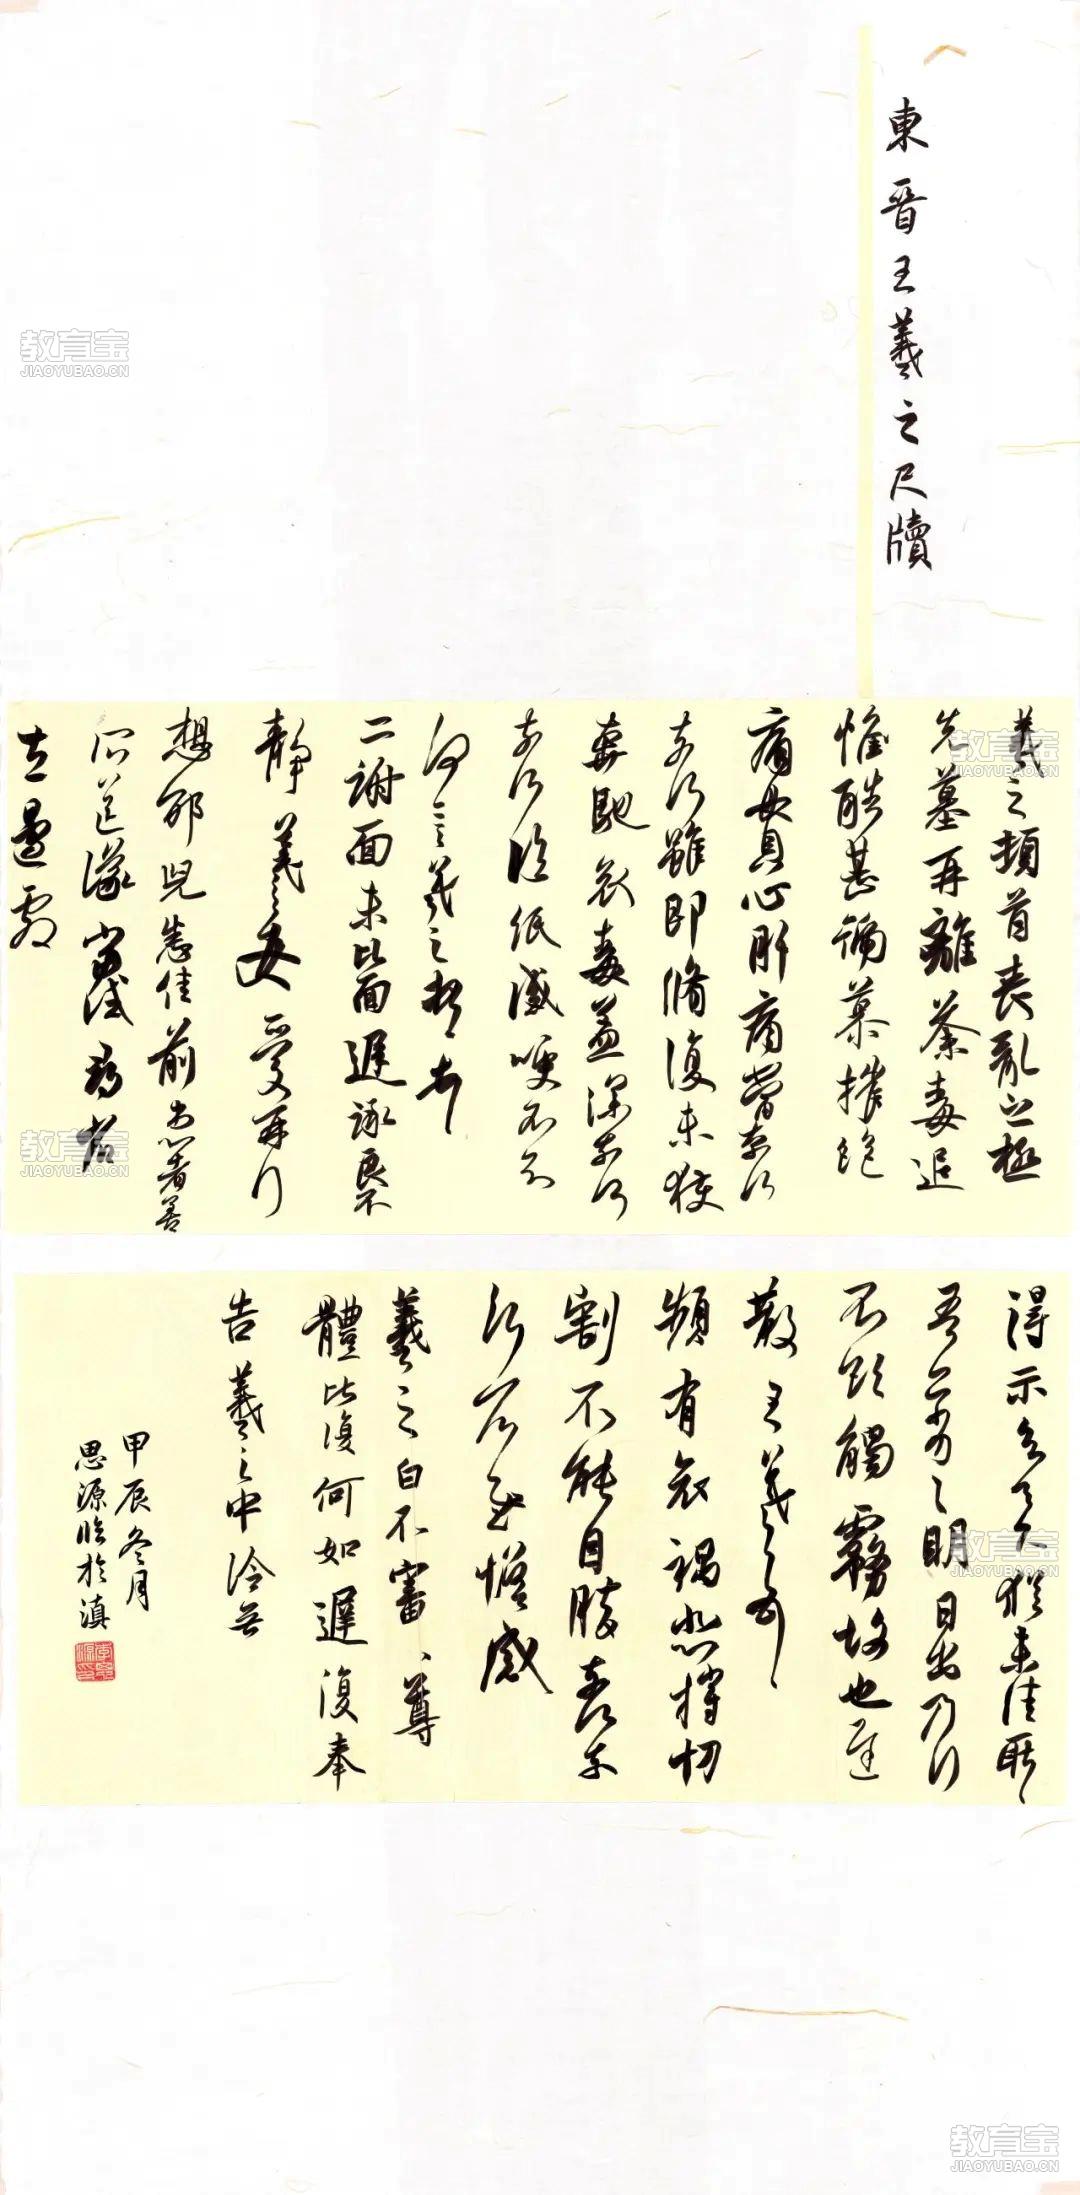 東晉王羲之尺牘
羲之頓首喪亂之極
先墓再離荼毒追
惟酷甚號慕摧絕
痛貫心肝痛當奈何
奈何雖即脩復未獲
奔馳哀毒益深奈何
奈何臨紙感哽不知
何言羲之頓首
二謝面未比面遲詠良不
靜羲之女愛再行
想邪兒悉佳前患者善
得示知足下猶未佳耿耿
吾亦劣劣明日出乃行
不欲觸霧故也遲
散王羲之
頻有哀禍悲摧切
割不能自勝奈何奈
何省慰增感
羲之白不審尊
體比復何如遲復奉
告羲之中冷無
甲辰冬月
思源臨於滇
教育宝
JIAOYUBAO.CN
教育宝
JIAOYUBAO.CN
教育宝
JIAOYUBAO.CN
教育宝
JIAOYUBAO.CN
教育宝
JIAOYUBAO.CN